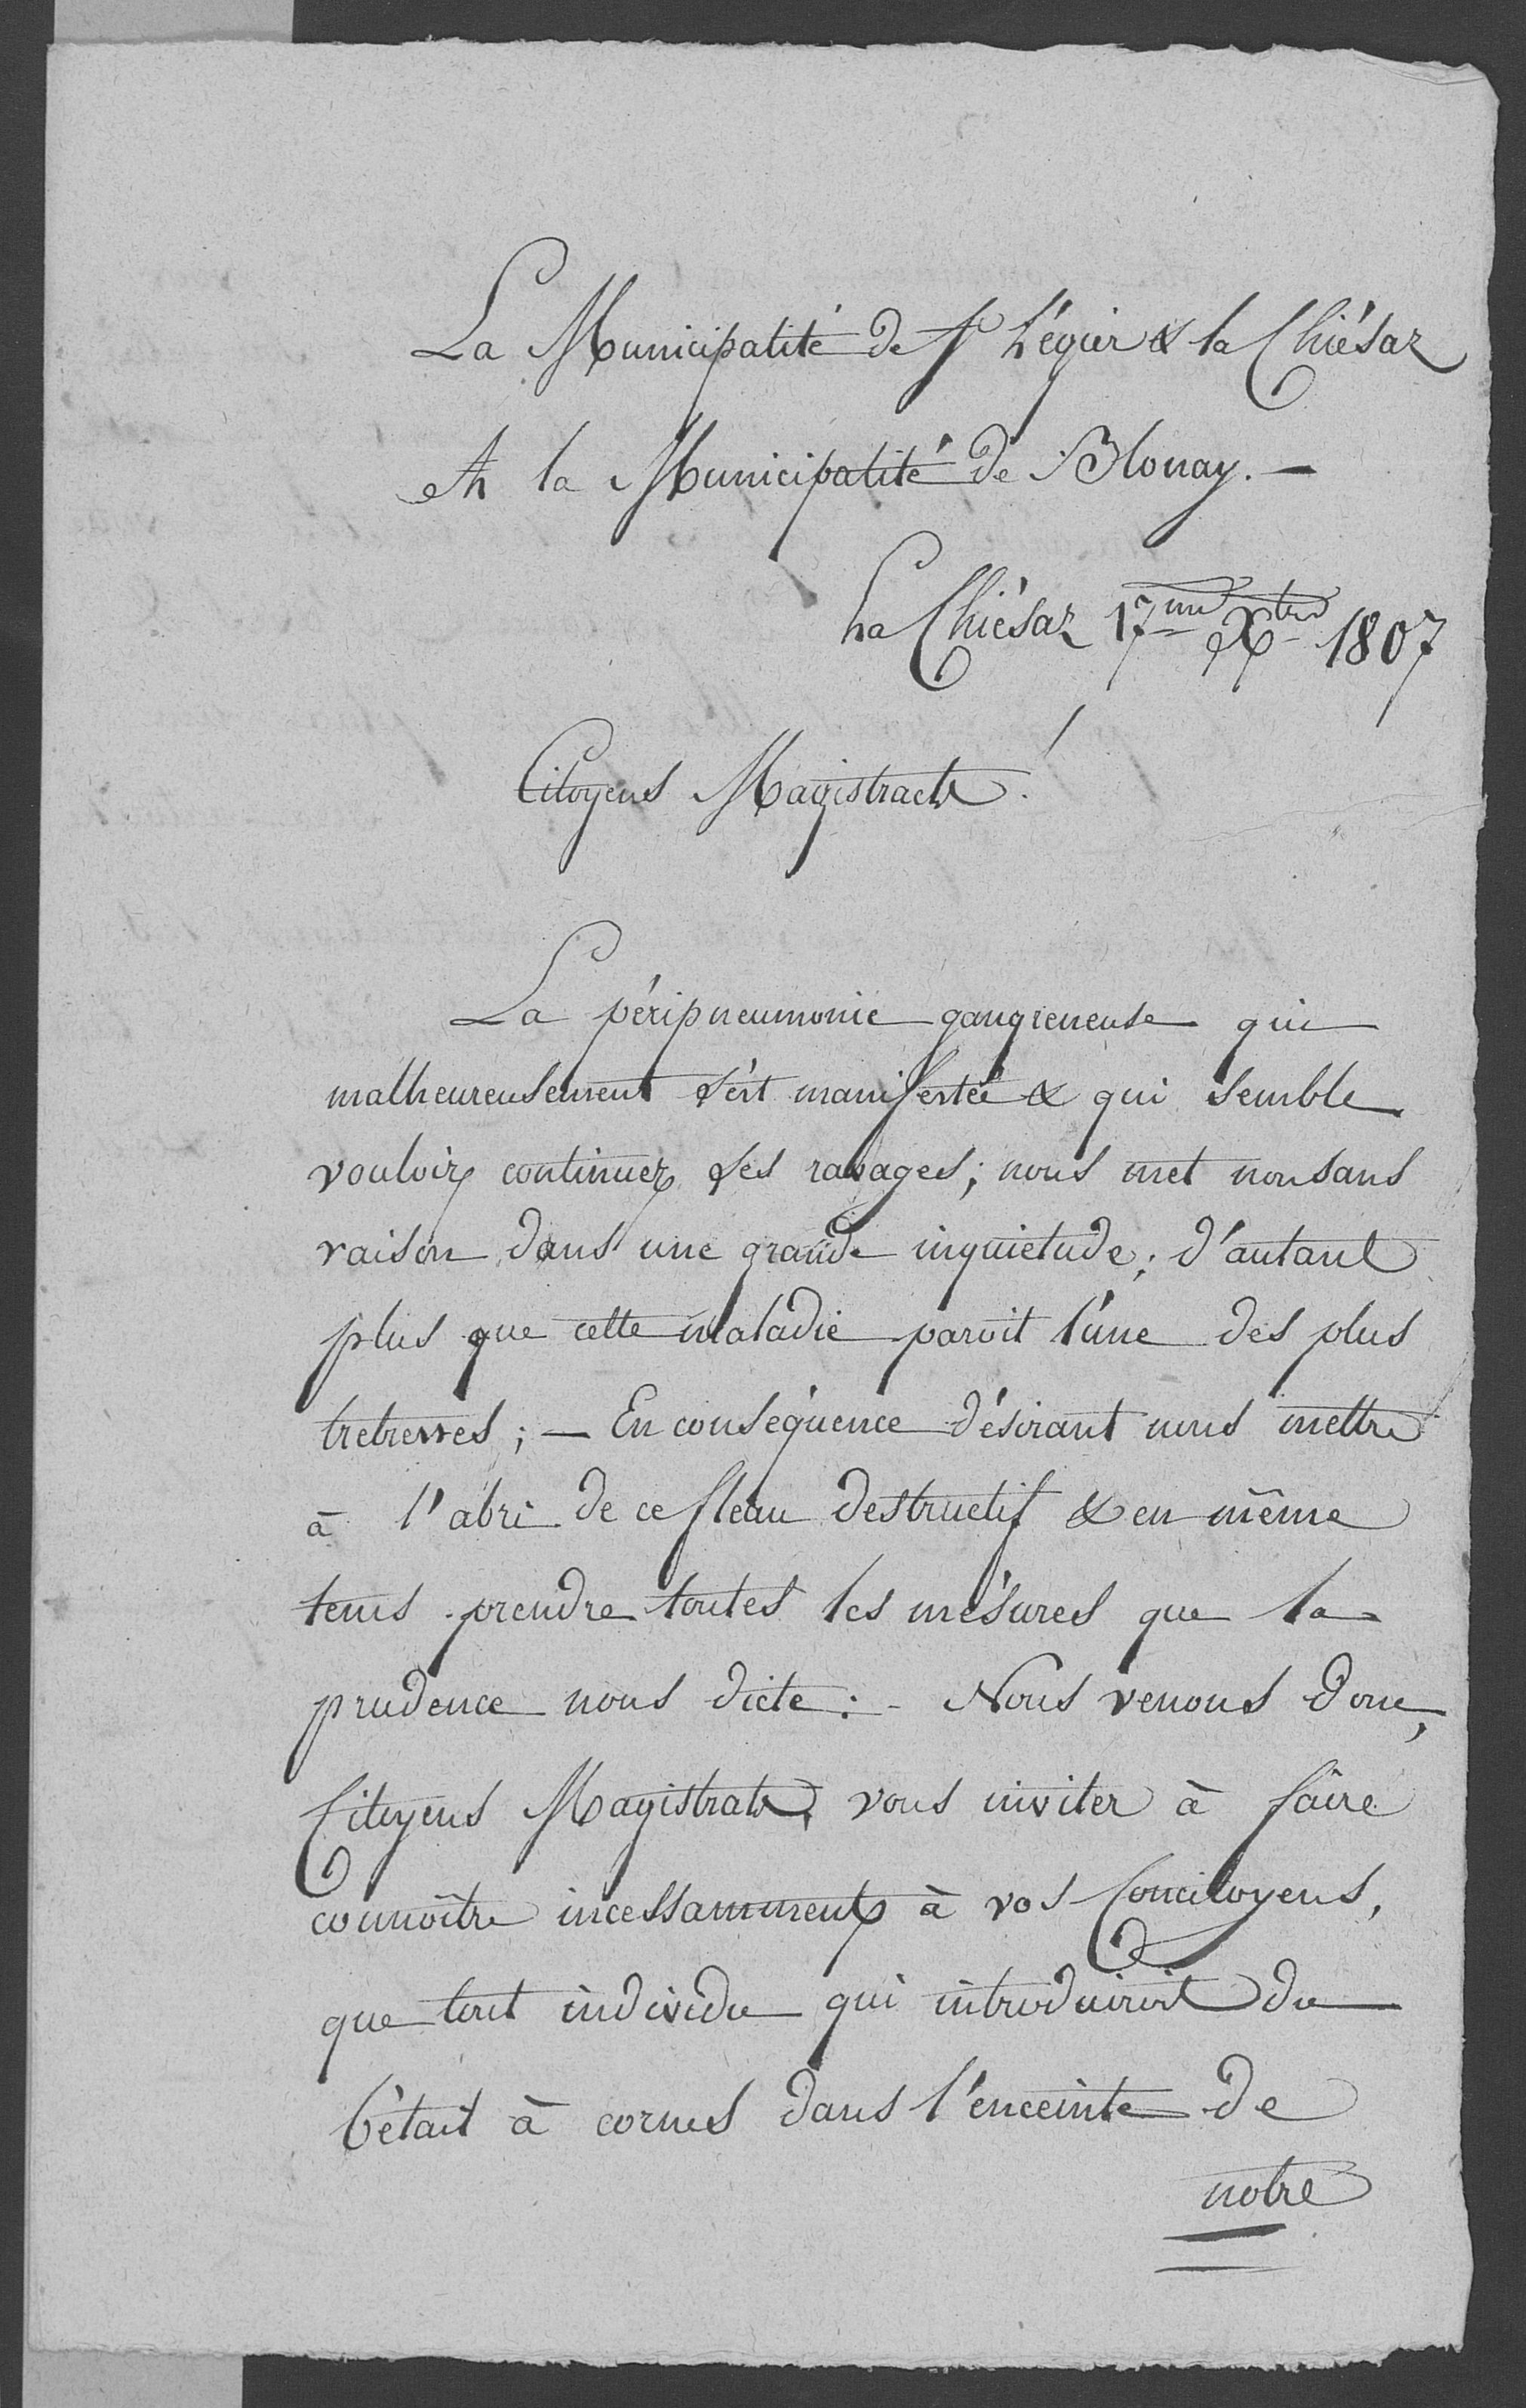 La Municipalité de St Légier & la Chiésaz
A la Municipalité de Blonay. —
La Chiésaz 17me Xbre 1807
Citoyens Magistracts!
La péripneumonie gangreneuse qui
malheureusement s'est manifestée & qui semble
vouloir continuer ses ravages; nous met non sans
raison dans une grande inquietude; d'autant
plus que cette maladie paroit l'une des plus
; — En conséquence désirant nous mettre
à l'abri de ce fleau destructif & en même
tems prendre toutes les mésures que la
prudence nous dicte: - Nous venons donc,
Citoyens Magistrats, vous inviter à faire
connoître incessamment à vos Concitoyens,
que tout individu qui introduiroit du
bétail à cornes dans l'enceinte de
notre